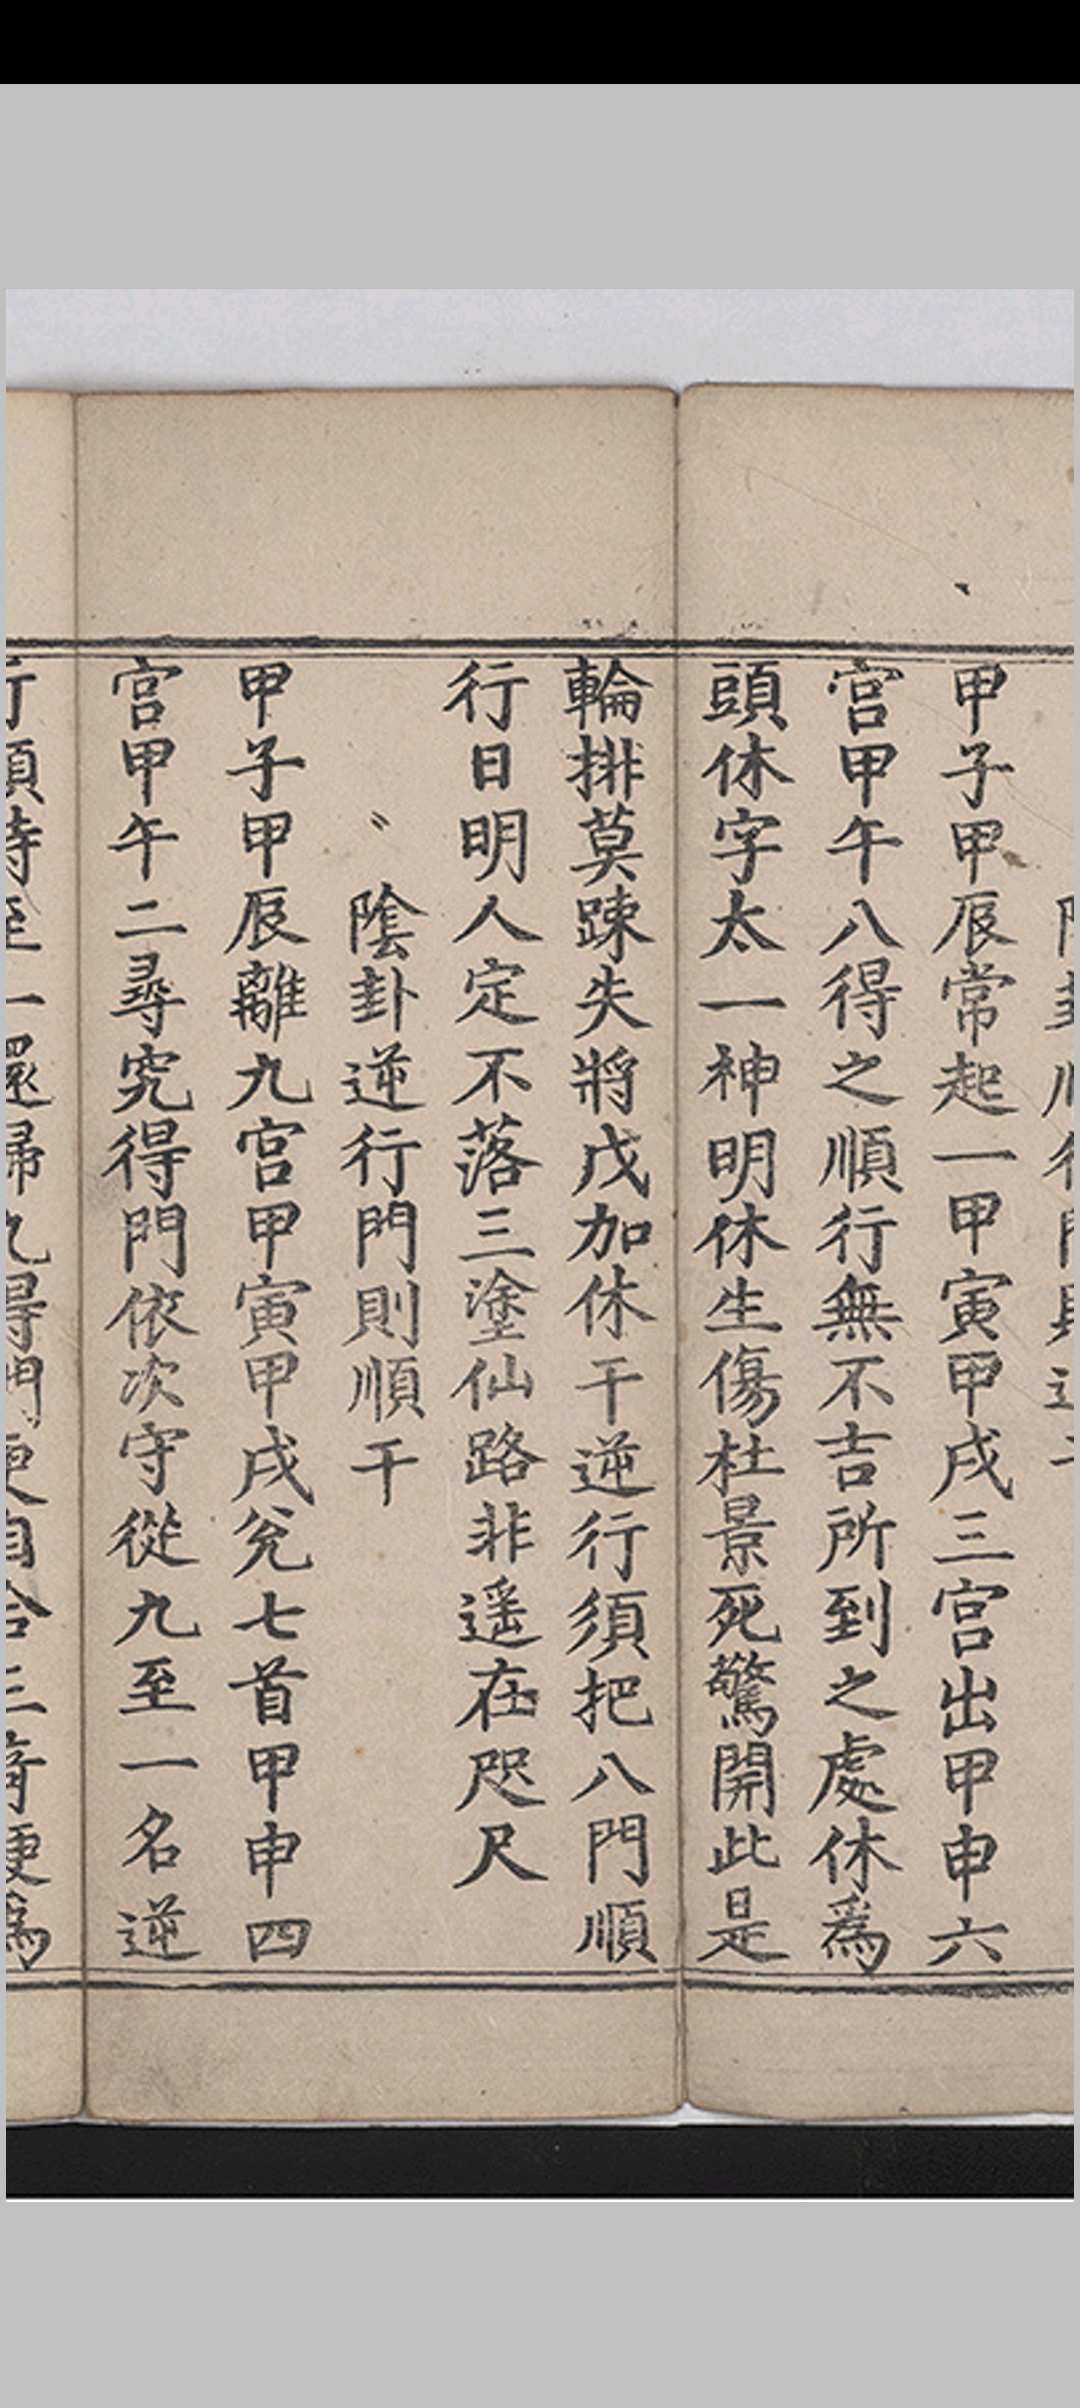 卦順行門
甲子甲辰常起一甲寅甲戌三宫出甲申六
宫甲午八得之順行無不吉所到之處休爲
頭休字太一神明休生傷杜景死驚開此是
輪排莫踈失將戊加休干逆行須把八門順
行日明人定不落三塗仙路非遥在咫尺
陰卦逆行門則順干
甲子甲辰離九宫甲寅甲戌兊七首甲申四
宫甲午二尋究得門依次守從九至一名逆
行順時至一還歸九得門更自合三竒便爲